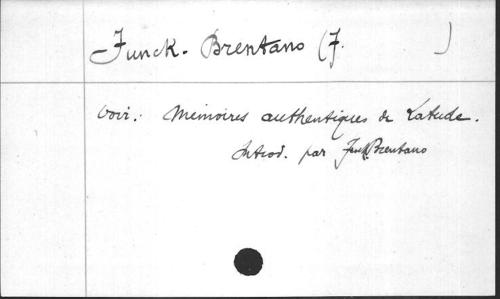 Funck-Brentano (F. )
Voir: Mémoires authentiques de Latude.
Introd. par Funck-Brentano